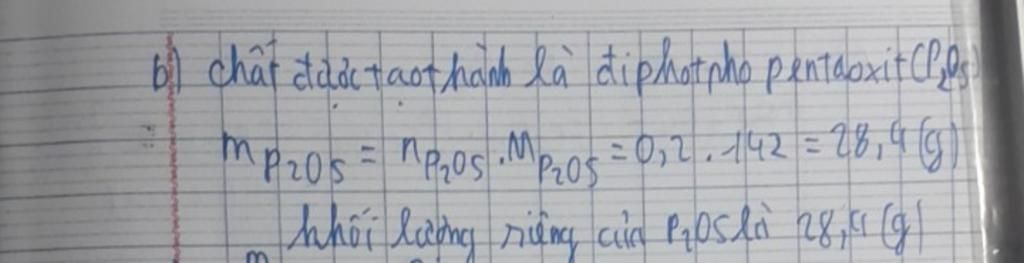 b) chất được tạo thành là điphotpho pentaoxit (P₂O₅)
m P₂O₅ = n P₂O₅ . M P₂O₅ = 0,2 . 142 = 28,4 (g)
khối lượng riêng của P₂O₅ là 28,4 (g)
m